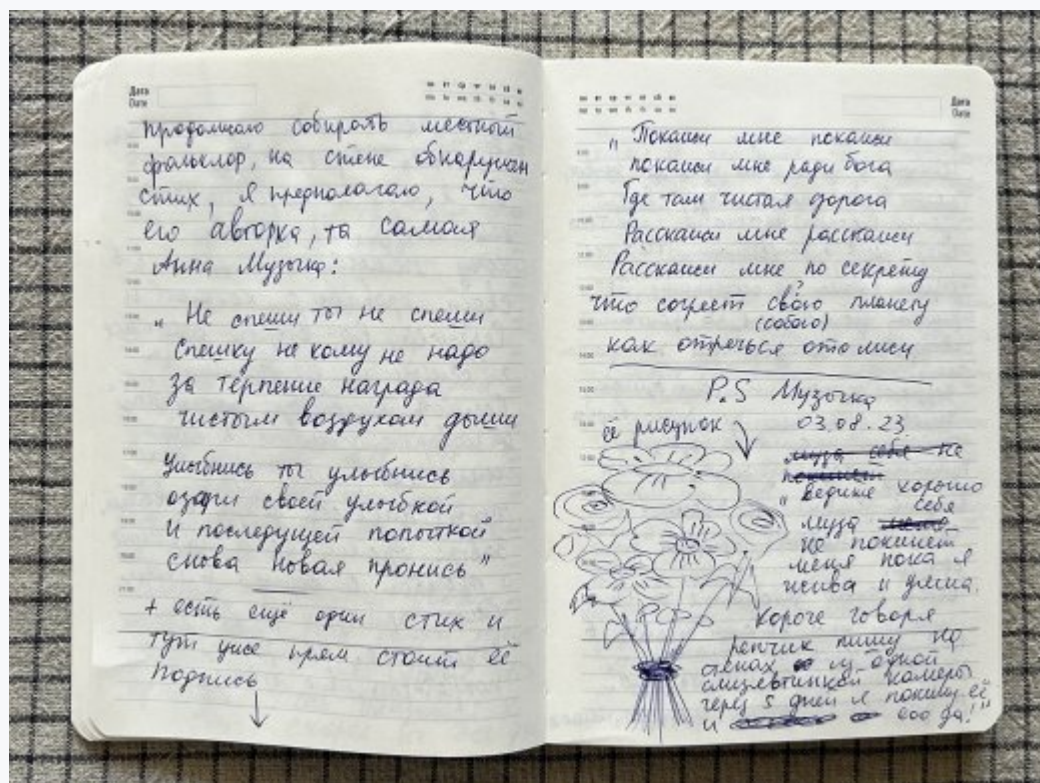 Дата
Date
продолжаю собирать местный
фольклор, на стене обнаружен
стих, я предполагаю, что
его авторка, та самая
Анна Музычка:
„ Не спеши ты не спеши
спешку не кому не надо
за терпение награда
чистым воздухом дыши
Улыбнись ты улыбнись
озари своей улыбкой
и последущей попыткой
снова новая пронись"
+ есть ещё один стих и
тут уже прям стоит её
подпись
Дата
Date
„ Покажи мне покажи
покажи мне ради бога
Где там чистая дорога
Расскажи мне расскажи
Расскажи мне по секрету
что согреет свого планету
(собою)
как отречься ото лжи
P.S Музычка
03.08.23
её рисунок
муза себя не
покинет
„ ведите хорошо
себя
муза
не покинет
меня пока я
жива и умна.
короче говоря
репчик пишу на
стенах из одной
камеры
через 5 дней я покину её
и ооо да!"